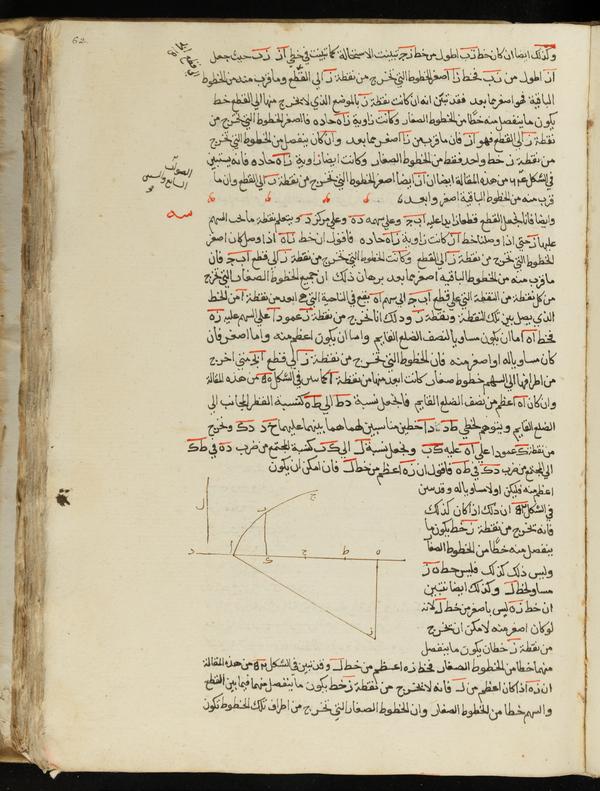 62
وكذلك ايضا ان كان خط زب اطول من خط زج تبينت الاستحالة كما تبينت في خطي از زب حيث جعل
از اطول من زب فخط زا اصغر الخطوط التي تخرج من نقطة ز الى القطع وما قرب منه من الخطوط
الباقية فهو اصغر مما بعد فقد تبين انه ان كانت نقطة ز بالموضع الذي لا يخرج منها الى القطع خط
يكون ما ينفصل منه خطا من الخطوط الصغار وكانت زاوية زاه حاده فاصغر الخطوط التي تخرج من
نقطة ز الى القطع فهو از فان ما قرب من زا اصغر مما بعد وان كان ينفصل من الخطوط التي تخرج
من نقطة ز خط واحد فقط من الخطوط الصغار وكانت ايضا زاوية زاه حاده فانه يستبين
في الشكل من هذه المقالة ايضا ان از ايضا اصغر الخطوط التي تخرج من نقطة ز الى القطع وان ما
قرب منه من الخطوط الباقية اصغر وابعد
سه
وايضا فانا نجعل القطع قطعا زايدا عليه ابج وعلى سهمه ده وعلى مركزه د ونتعلم نقطة ما تحت السهم
عليها ز حتى اذا وصلنا خط از كانت زاوية زاه حاده فاقول ان خط زاه اذا وصل كان اصغر
الخطوط التي تخرج من نقطة ز الى القطع وكانت الخطوط التي تخرج من نقطة ز الى قطع ابج فان
ما قرب منه من الخطوط الباقيه اصغر مما بعد برهان ذلك ان جميع الخطوط الصغار التي تخرج
من كل نقطة من النقطة التي على قطع ابج الى سهم اه يقع في الناحية التي هي ابعد من نقطة ا من الخط
الذي يصل بين تلك النقطة ونقطة ز وذلك انا نخرج من نقطة ز عمودا على السهم عليه زه
فخط اه اما ان يكون مساويا لنصف الضلع القايم واما ان يكون اعظم منه واما اصغر فان
كان مساويا له او اصغر منه فان الخطوط التي تخرج من نقطة ز الى قطع ابج متى اخرج
من اطرافها الى السهم خطوط صغار كانت ابعد منها من نقطة ا كما سن في الشكل من هذه المقالة
وان كان اه اعظم من نصف الضلع القايم فانجعل نسبة دط الى طه كنسبة القطر المجانب الى
الضلع القايم ونتوهم لخطي طد دا خطين مناسبين لهما فيما بينهما عليهما حد دك ونخرج
من نقطة ك عمودا على اه عليه كب ونجعل نسبة ل الى كب كنسبة المجتمع من ضرب ده في طك
الى المجتمع من ضرب دك في طه فاقول ان زه اعظم من خط ل فان امكن ان يكون
اعظم منه فليكن اولا مساويا له وقد سن
في الشكل ان ذلك اذا كان كذلك
فانه تخرج من نقطة ز خط يكون ما
ينفصل منه خطا من الخطوط الصغار
وليس ذلك كذلك فليس خط ه ز
مساو لخط ل وكذلك ايضا نتبين
ان خط زه ليس باصغر من خط ل لانه
لو كان اصغر منه لامكن ان تخرج
من نقطة ز خطان يكون ما ينفصل
منهما خطا من الخطوط الصغار فخط زه اعظم من خط ل وقد تبين في الشكل من هذه المقالة
ان زه اذا كان اعظم من ل فانه لا تخرج من نقطة ز خط يكون ما ينفصل منها فيما بين القطع
والسهم خطا من الخطوط الصغار وان الخطوط الصغار التي تخرج من اطراف تلك الخطوط تكون